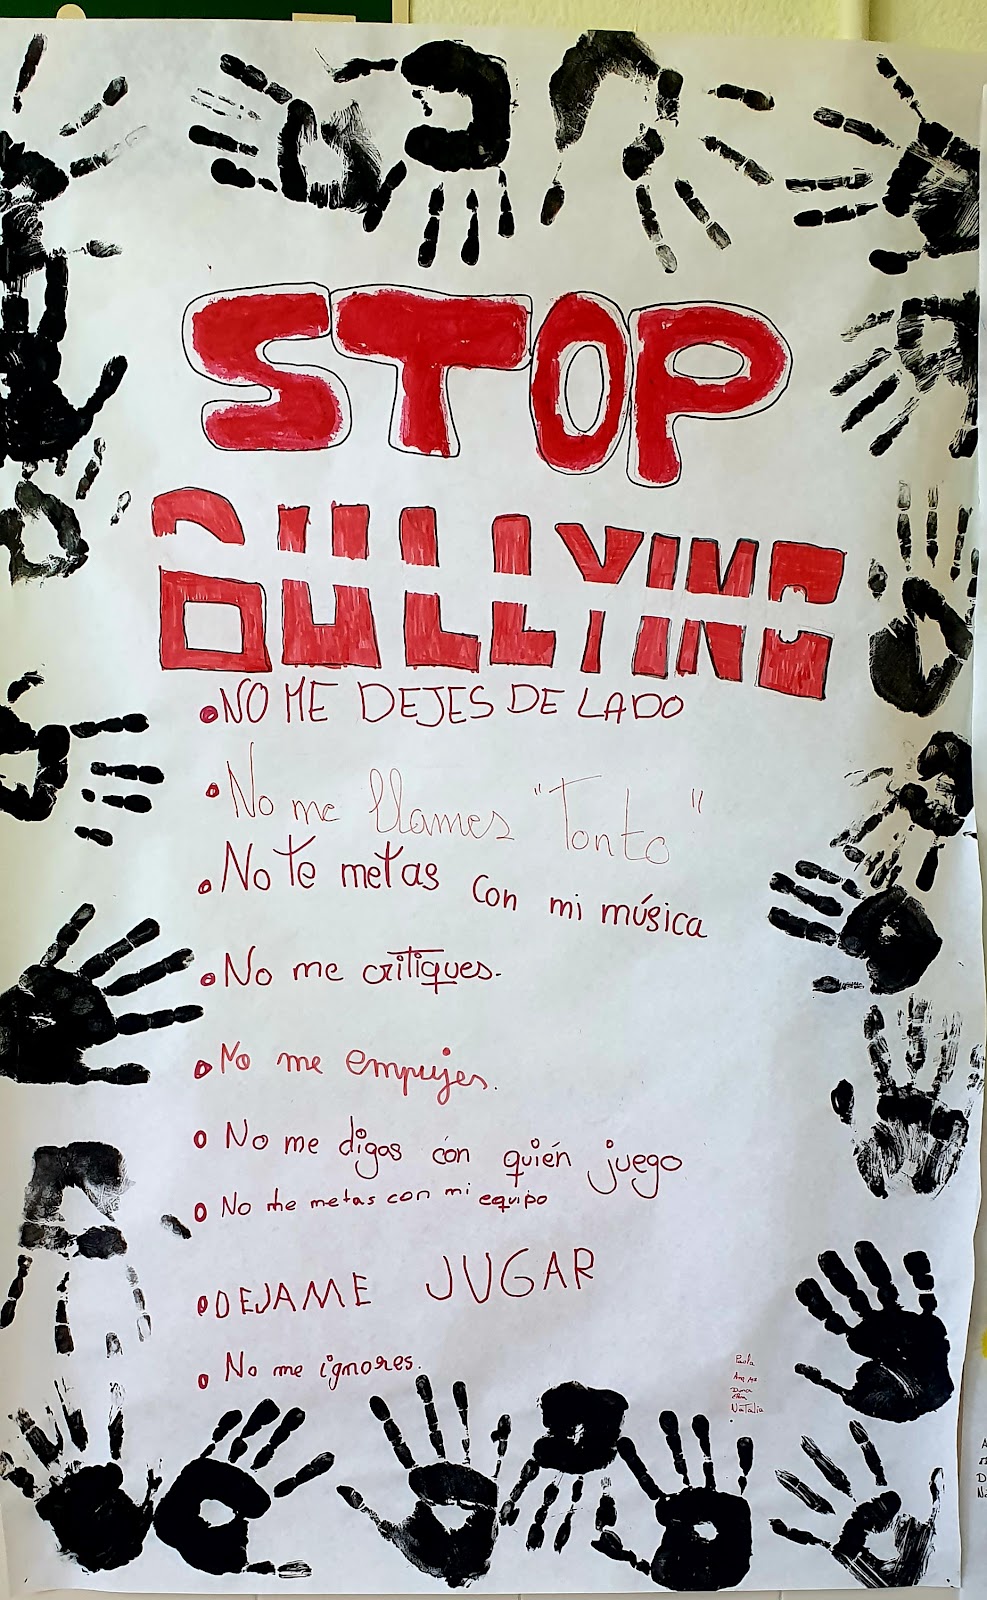 STOP
BULLYING
• NO ME DEJES DE LADO
• No me llames "Tonto"
• No te metas con mi música
• No me critiques.
• No me empujes.
• No me digas con quién juego
• No me metas con mi equipo
• DEJAME JUGAR
• No me ignores.
Paola
Ana Mª
Natalia